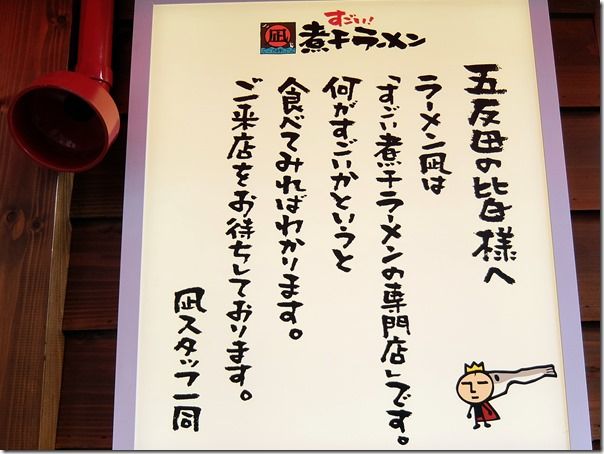 すごい!
凪 煮干ラーメン
五反田の皆様へ
ラーメン凪は
「すごい煮干ラーメンの専門店」です。
何がすごいかというと
食べてみればわかります。
ご来店をお待ちしております。
凪スタッフ一同